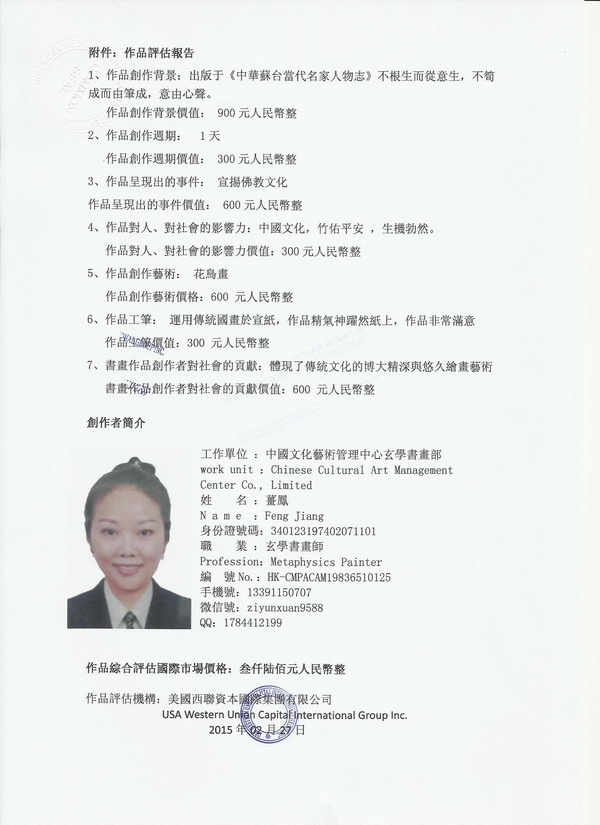 附件：作品評估報告
1、作品創作背景：出版于《中華蘇台當代名家人物志》不根生而從意生，不筍
成而由筆成，意由心聲。
作品創作背景價值： 900 元人民幣整
2、作品創作週期： 1 天
作品創作週期價值： 300 元人民幣整
3、作品呈現出的事件： 宣揚佛教文化
作品呈現出的事件價值： 600 元人民幣整
4、作品對人、對社會的影響力：中國文化，竹佑平安 ，生機勃然。
作品對人、對社會的影響力價值：300 元人民幣整
5、作品創作藝術： 花鳥畫
作品創作藝術價格：600 元人民幣整
6、作品工筆： 運用傳統國畫於宣紙，作品精氣神躍然紙上，作品非常滿意
作品工筆價值：300 元人民幣整
7、書畫作品創作者對社會的貢獻：體現了傳統文化的博大精深與悠久繪畫藝術
書畫作品創作者對社會的貢獻價值：600 元人民幣整
創作者簡介
工作單位 ：中國文化藝術管理中心玄學書畫部
work unit ：Chinese Cultural Art Management
Center Co., Limited
姓 名 ：薑鳳
N a m e ：Feng Jiang
身份證號碼：340123197402071101
職 業 ：玄學書畫師
Profession：Metaphysics Painter
編 號 No.：HK-CMPACAM19836510125
手機號：13391150707
微信號：ziyunxuan9588
QQ：1784412199
作品綜合評估國際市場價格：叁仟陸佰元人民幣整
作品評估機構：美國西聯資本國際集團有限公司
USA Western Union Capital International Group Inc.
2015 年 02 月 27 日